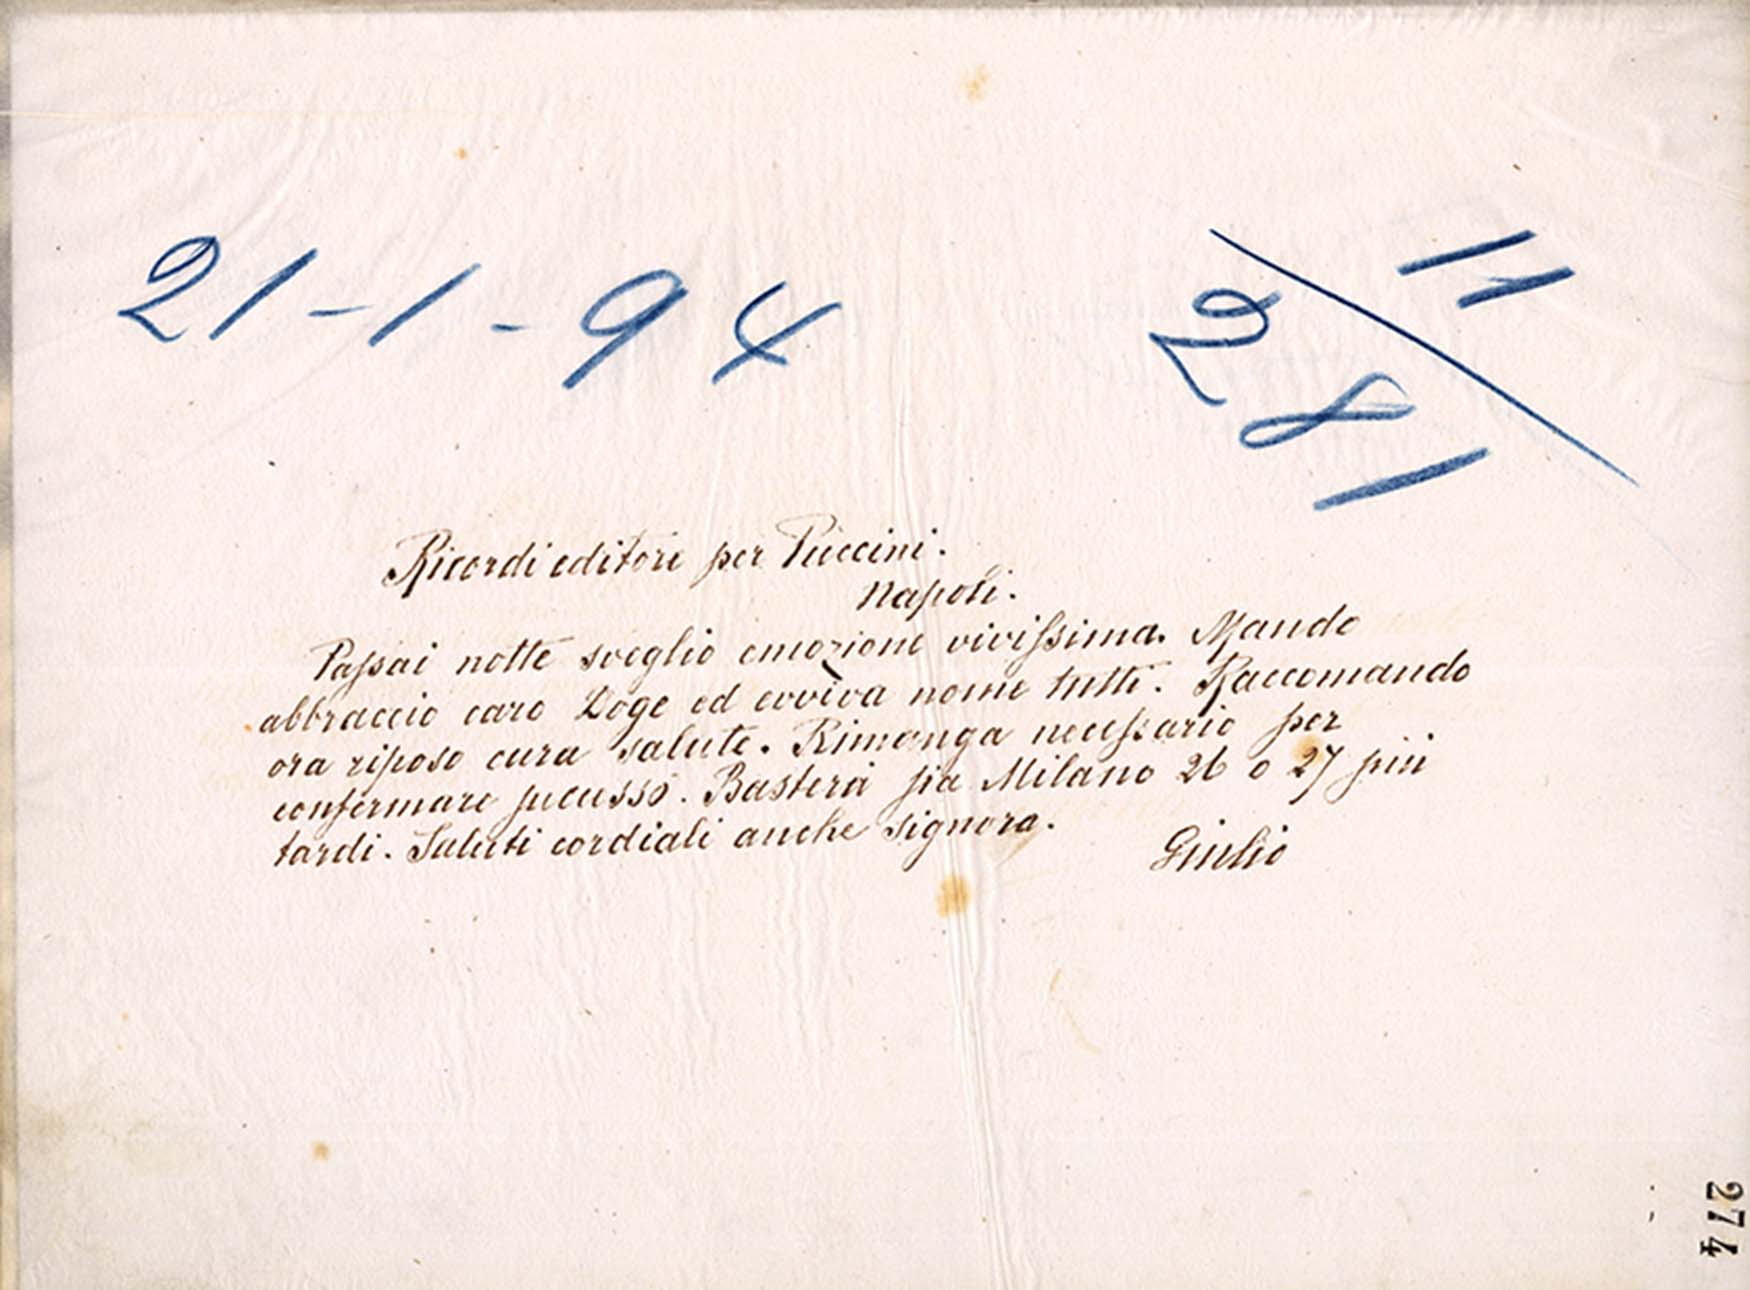 21-1-94
11
281
Ricordi editore per Puccini.
Napoli.
Passai notte sveglio emozione vivissima. Mando
abbraccio caro Doge ed evviva nome tutti. Raccomando
ora riposo cura salute. Rimanga necessario per
confermare successo. Basterà sia Milano 26 o 27 più
tardi. Saluti cordiali anche signora.
Giulio
274